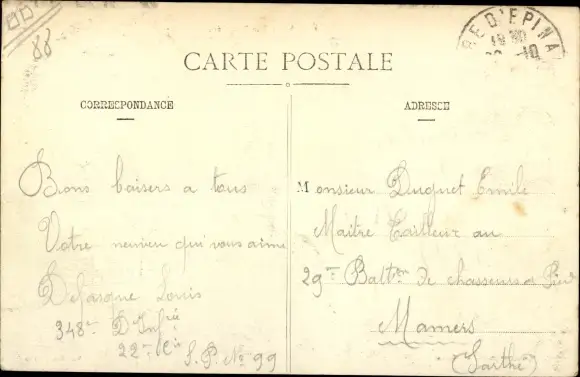 88
RE D'EPINA
CARTE POSTALE
CORRESPONDANCE
ADRESSE
Bons baisers a tous
Votre neuveu qui vous aime
Louis
348e D'Inf
22e Cie
S.P. No 99
Monsieur Duguet Emile
Maitre Tailleur au
29e Batton de chasseurs a Pied
Mamers
(Sarthe)